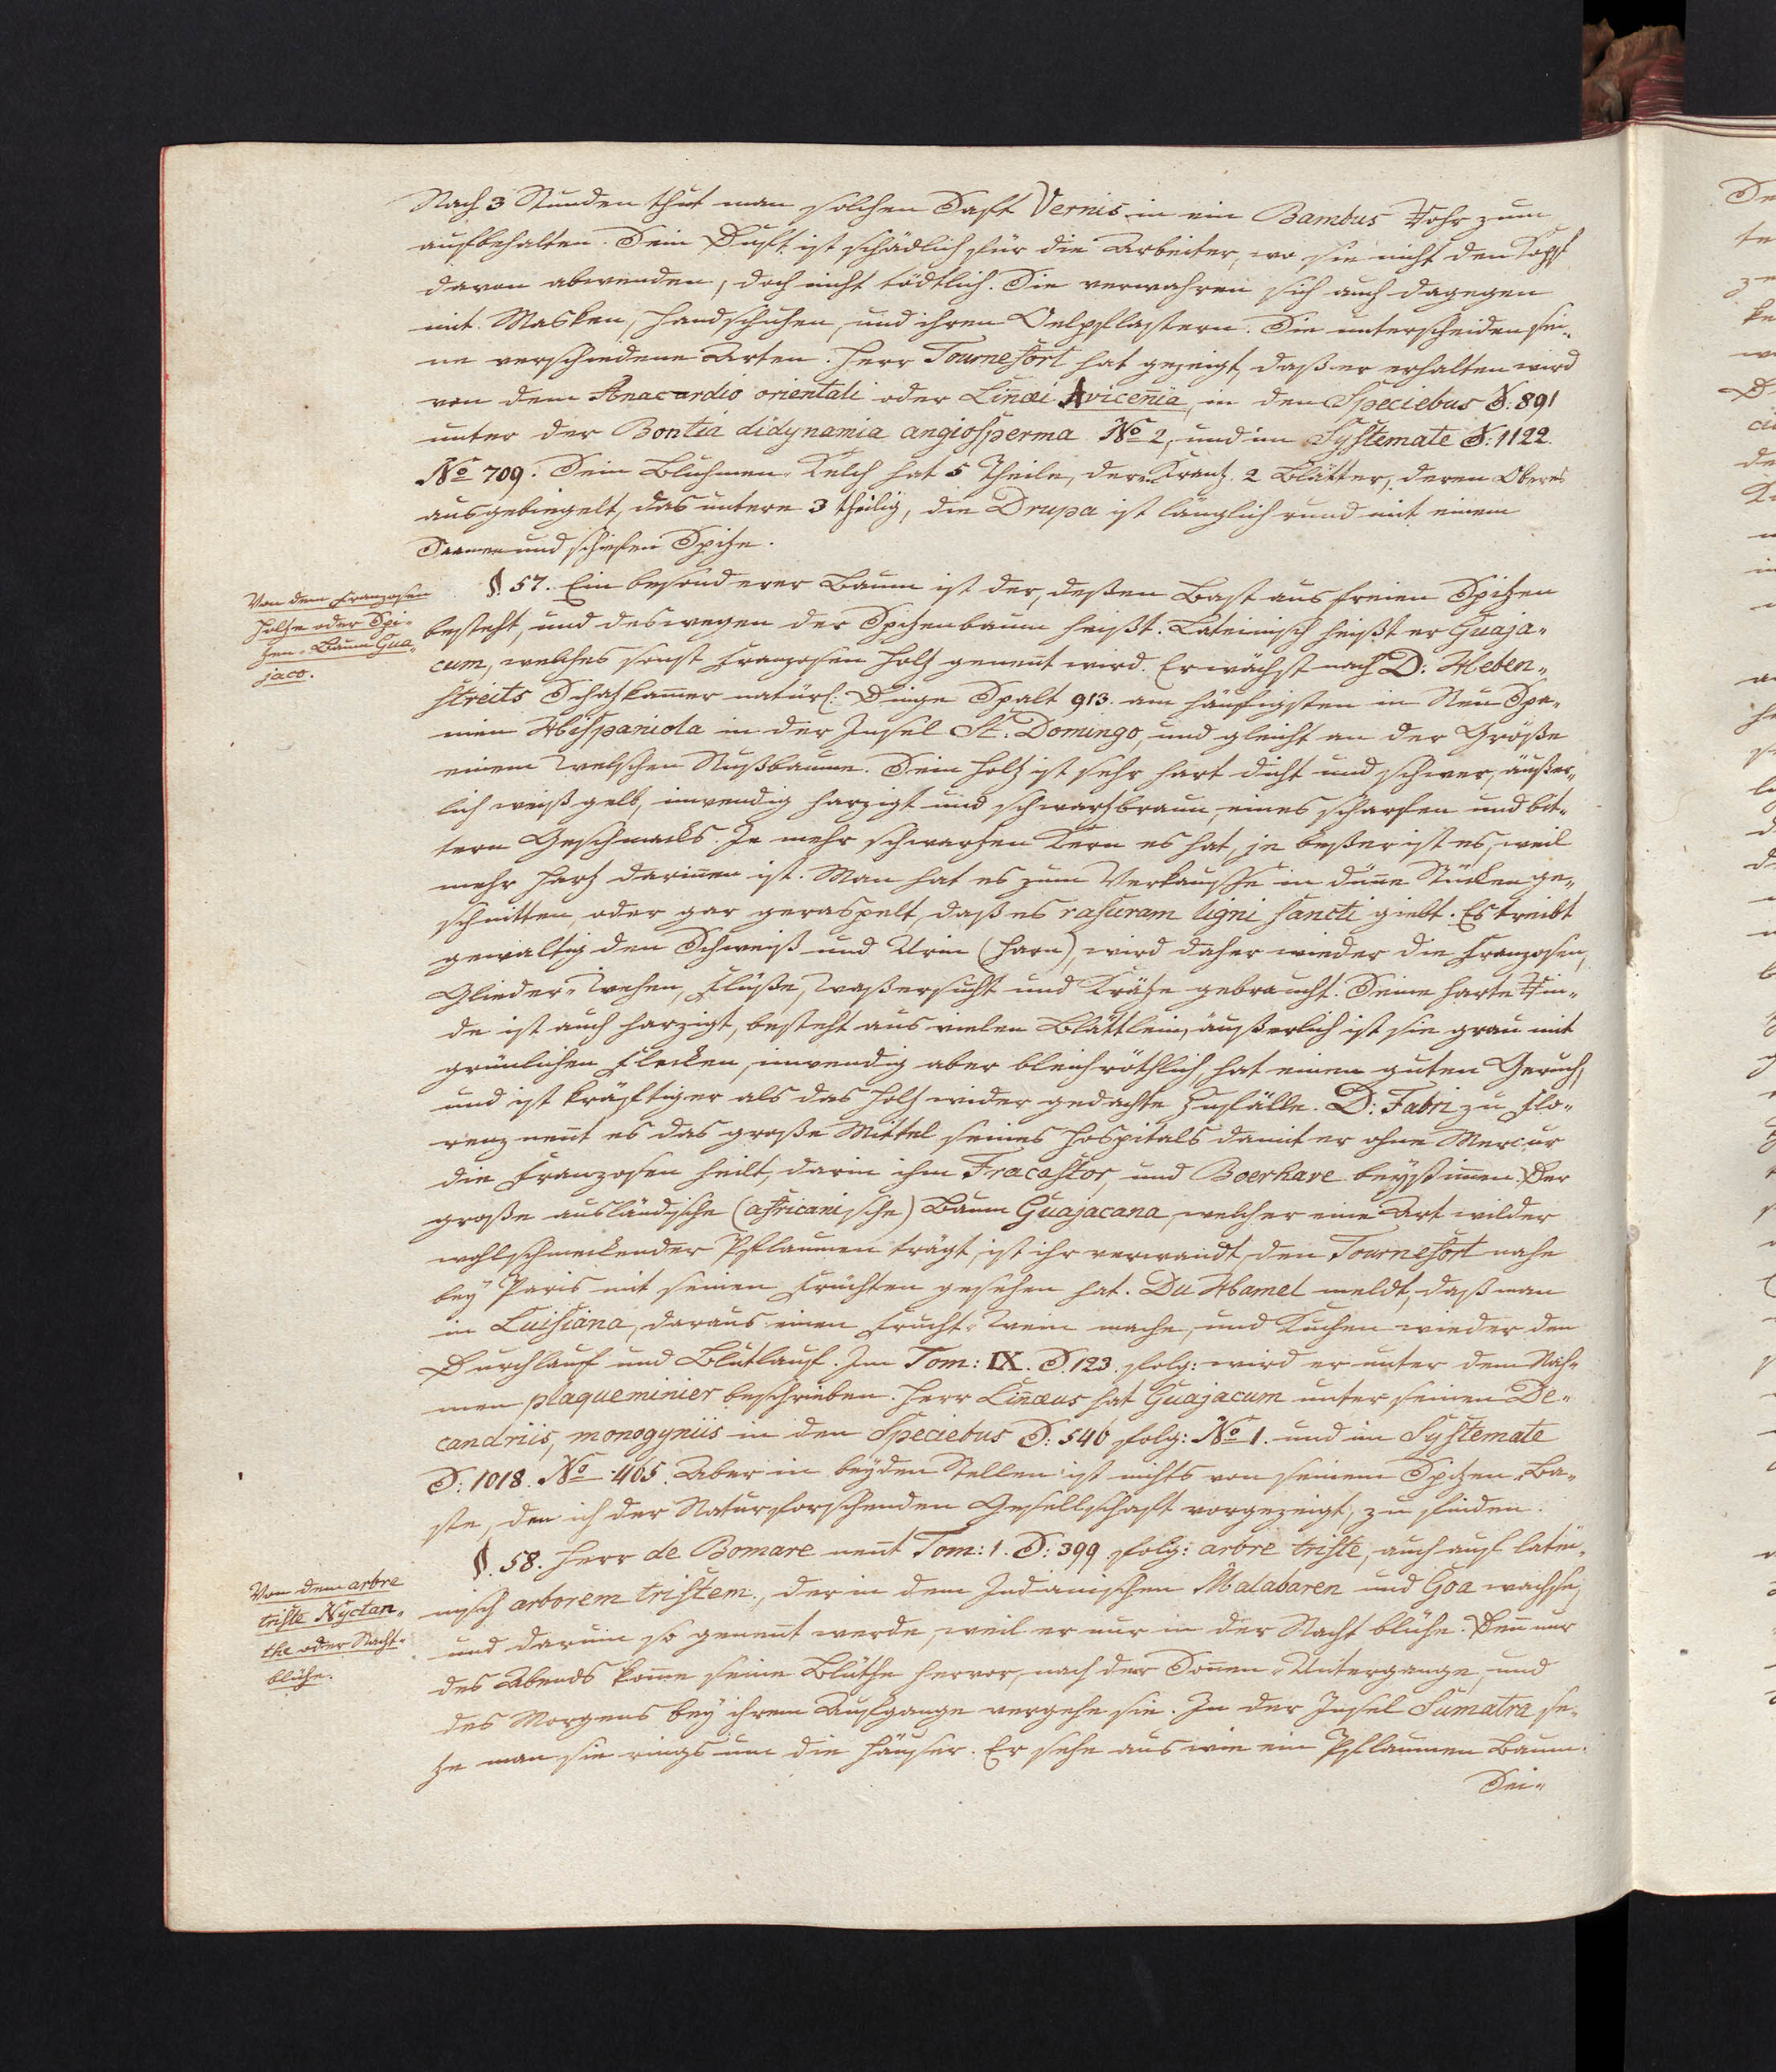 Nach 3 Stunden thut man solchen Saft Vernis in ein Bambus Rohr zum
aufbehalten. Sein Duft ist schädlich für die Arbeiter, wo sie nicht den Kopf
davon abwenden, doch nicht tödtlich. Sie verwahren sich auch dagegen
mit Masken, Handschuhen, und ihren Oelpflastern. Sie unterscheiden sei-
ne verschiedene Arten. Herr Tournefort hat gezeigt, daß er erhalten wird
von dem Anacardio orientali oder Lin̄æi Avicen̄ia, in den Speciebus S: 891
unter der Bontia didynamia angiosperma No 2, und im Systemate S: 1122.
No 709. Sein Bluhmen-Kelch hat 5 Theile, der Krantz 2 Blätter, deren Oberes
ausgebiegelt, das untere 3 theilig, die Drupa ist länglich rund mit einem
Saamen und schiefen Spitze.
Von dem Franzosen
Holtze oder Spi-
tzen-Baum Gua-
jaco.
§. 57. Ein besonderer Baum ist der, deßen Bast aus freien Spitzen
besteht, und deswegen der Spitzenbaum heißt. Lateinisch heißt er Guaja-
cum, welches sonst Franzosen Holtz genent wird. Er wächst nach D: Heben-
streits Schatzkam̄er natürl: Dinge Spalt 913. am häufigsten in Neu Spa-
nien Hispaniola in der Insel St. Domingo, und gleicht an der Größe
einem welschen Nußbaume. Sein Holtz ist sehr hart dicht und schwer, äußer-
lich weißgelb, inwendig harzigt und schwartzbraun, eines scharfen und bit-
tern Geschmacks. Je mehr schwartzen Kern es hat, je beßer ist es, weil
mehr Hartz darin̄en ist. Man hat es zum Verkauffe in dün̄e Stücken ge-
schnitten, oder gar geraspelt, daß es rasuram ligni sancti giebt. Es treibt
gewaltig den Schweiß und Urin (Harn), wird daher wieder die Franzosen,
Glieder-Wehen, Flüße, Waßersucht und Krätze gebraucht. Seine harte Rin-
de ist auch harzigt, besteht aus vielen Blättlein, äußerlich ist sie grau mit
grünlichen Flecken, inwendig aber bleichröthlich, hat einen guten Geruch,
und ist kräftiger als das Holtz wider gedachte Zufälle. D: Fabri zu Flo-
renz nent es das große Mittel seines Hospitals damit er ohne Mercur
die Franzosen heilt, darin ihm Fracastor, und Boerhave beystim̄en. Der
große ausländische (africanische) Baum Guajacana, welcher eine Art wilder
wohlschmeckender Pflaumen trägt, ist ihr verwandt, den Tournefort nahe
bey Paris mit seinen Früchten gesehen hat. Du Hamel meldt, daß man
in Luisiana, daraus einen Frucht-Wein mache, und Kuchen wieder den
Durchlauf und Blutlauf. Im Tom: IX. S. 123. folg: wird er unter dem Nah-
men plaqueminier beschrieben. Herr Lin̄æus hat Guajacum unter seinen De-
candriis, monogyniis in den Speciebus S: 546 folg: No 1. und im Systemate
S: 1018. No 465. Aber in beyden Stellen ist nichts von seinem Spitzen-Ba-
ste, den ich der Naturforschenden Gesellschaft vorgezeigt, zu finden.
Von dem arbre
triste Nyctan-
the oder Nacht-
blühe.
§. 58. Herr de Bomare nen̄t Tom: 1. S: 399 folg: arbre triste, auch auf latei-
nisch arborem tristem, der in dem Indianischen Malabaren und Goa wachse,
und darum so genen̄t werde, weil er nur in der Nacht blühe. Den̄ nur
des Abends kom̄e seine Blüthe hervor, nach der Son̄en-Untergange, und
des Morgens bey ihrem Aufgange vergehe sie. In der Insel Sumatra se-
tze man sie rings um die Häuser. Er sehe aus wie ein Pflaumen Baum.
Sei-